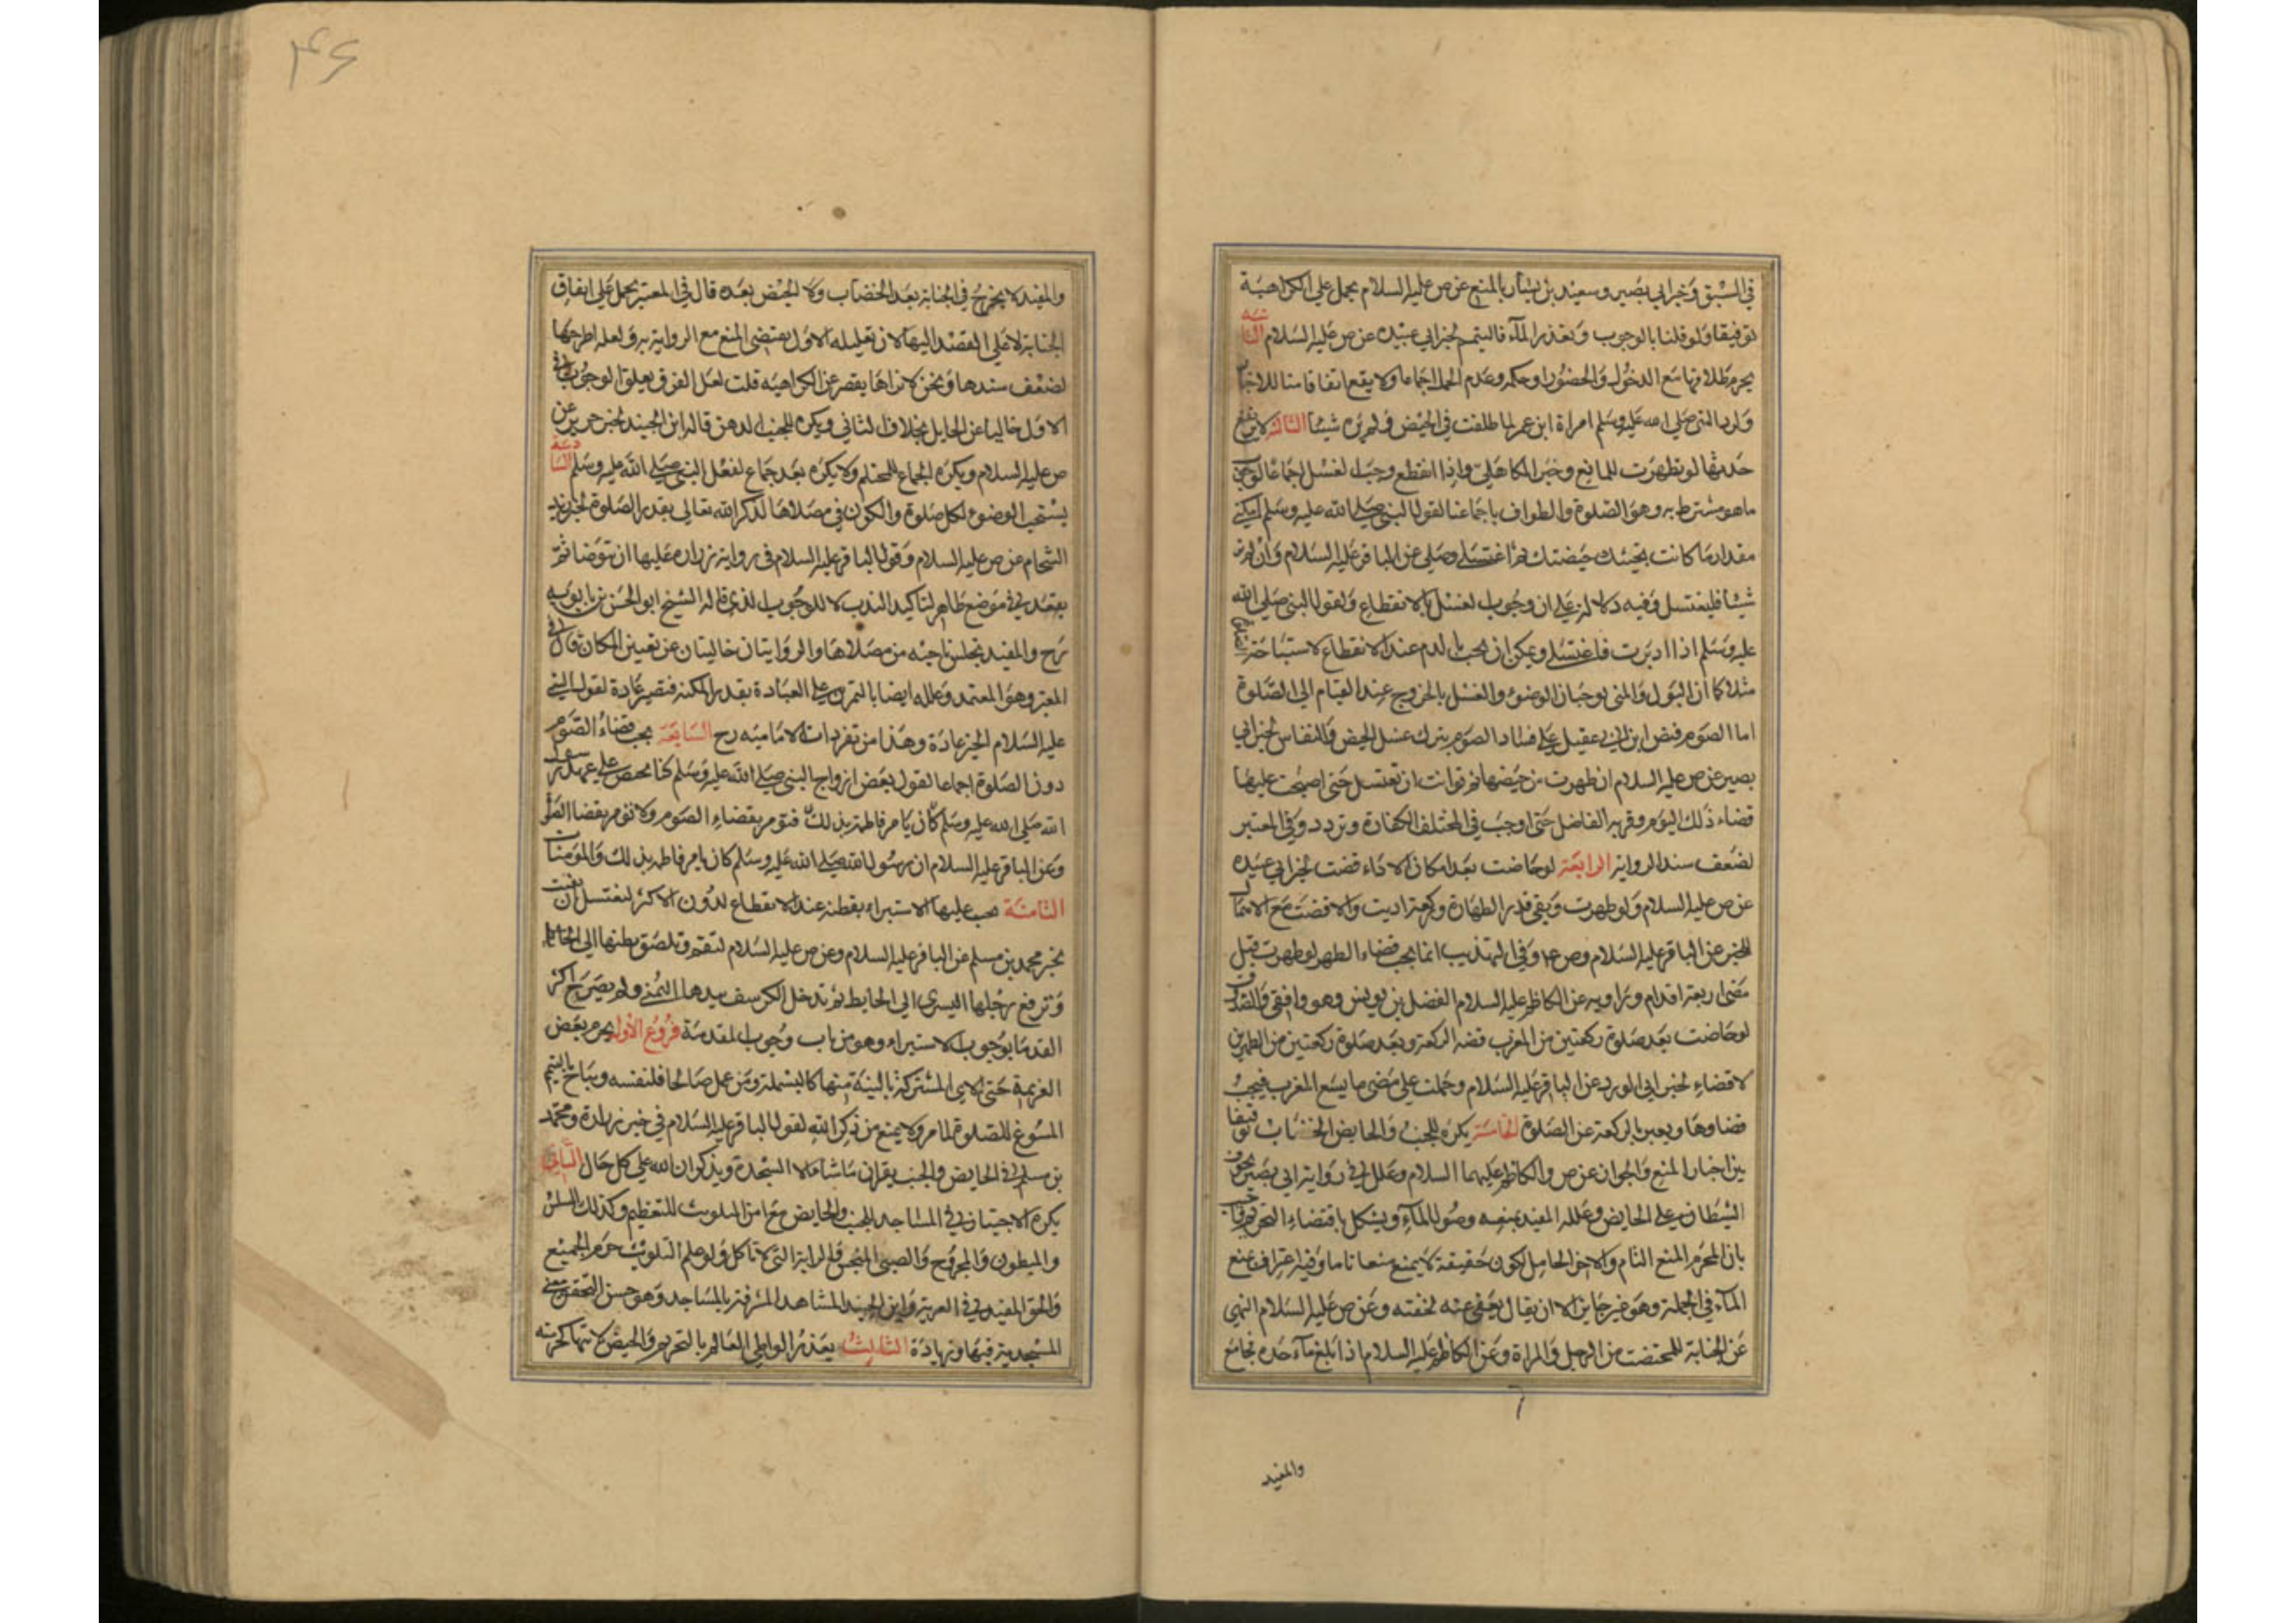 في السبق وخبر ابي بصير وسعيد بن يسار بالمنع عن ص عليه السلام يحمل علي الكراهية
توفيقا ولو قلنا بالوجوب وتعذر الماء فالتيمم لخبر ابي عبيده عن ص عليه السلام الثانية
يحرم طلاقها مع الدخول والحضور او حكمه وعدم الحمل اجماعا ولا يقع اتفاقا منا للاخبار
ولرد النبي صلي الله عليه وسلم امراة ابن عمر لما طلقت في الحيض ولم يره شيئا الثالثة لا يرتفع
حدثها لو تطهرت للمانع وخبر الكاهلي واذا انقطع وجب الغسل اجماعا لوجوب
ما هو مشترط به وهو الصلوة والطواف باجماعنا لقول النبي صلي الله عليه وسلم امكثي
مقدار ما كانت تحبسك حيضتك ثم اغتسلي وصلي عن الباقر عليه السلام وان لم تر
شيئا فليغتسل وفيه دلالة علي ان وجوب الغسل بالانقطاع ولقول النبي صلي الله
عليه وسلم اذا ادبرت فاغتسلي ويمكن ان يجب بالدم عند الانقطاع لاستباحة الصلوة
مثلا كما ان البول والمني يوجبان الوضوء والغسل بالخروج عند القيام الي الصلوة
اما الصوم فنص ابن ابي عقيل علي فساد الصوم بترك غسل الحيض والنفاس لخبر ابي
بصير عن ص عليه السلام ان طهرت من حيضها ثم توانت ان تغتسل حتي اصبحت عليها
قضاء ذلك اليوم وقربه الفاضل حتي اوجب في المختلف الكفارة وتردد في المعتبر
لضعف سند الرواية الرابعة لو حاضت بعد امكان الاداء قضت لخبر ابي عبيده
عن ص عليه السلام ولو طهرت وبقي قدر الطهارة وركعة اديت والا قضت مع الاهمال
للخبر عن الباقر عليه السلام وص عا وفي التهذيب انما يجب قضاء الطهر لو طهرت قبل
مضي اربعة اقدام وراويه عن الكاظم عليه السلام الفضل بن يونس وهو واقفي والصدوق
لو حاضت بعد صلوة ركعتين من المغرب قضت الركعة وبعد صلوة ركعتين من الظهرين
لا قضاء لخبر ابي الورد عن الباقر عليه السلام وحملت علي مضي ما يسع المغرب فيجب
قضاوها ويعبر بالركعة عن الصلوة الخامسة يكره للجنب والحايض الخضاب توفيقا
بين اخبار المنع والجواز عن ص والكاظم عليهما السلام وعلل في رواية ابي بصير بخوف
الشيطان علي الحايض وعلله المفيد بمنعه وصول الماء ويشكل باقتضاء التحريم
بان المحرم المنع التام والاجزاء الحامل لكون خفيفة لا يمنع منعا تاما وفيه اعتراف بمنع
الماء في الجملة وهو غير جايز الا ان يقال يعفي عنه لخفته وعن ص عليه السلام النهي
عن الجنابة للمختضب من الرجل والمراة وعن الكاظم عليه السلام اذا بلغ ماء حده فجامع
والمفيد
۴۶
والمفيد لا يخرج في الجنابة بعد الخضاب ولا الحيض بعده قال في المعتبر يحمل علي اتفاق
الجنابة لا علي القصد اليها لان تعليله الاول يقتضي المنع مع الرواية به ولعله اطرحها
لضعف سندها ونحن لا نراها يقصر عن الكراهية قلت لعل الفرق تعلق الوجوب في
الاول خاليا عن الحايل بخلاف الثاني ويكره للجنب الدهن قاله ابن الجنيد لخبر حريز عن
ص عليه السلام ويكره الجماع للمحتلم ولا يكره بعد جماع لفعل النبي صلي الله عليه وسلم السادسة
يستحب الوضوء لكل صلوة والكون في مصلاها لذكر الله تعالي بقدر الصلوة لخبر زيد
الشحام عن ص عليه السلام وقول الباقر عليه السلام في رواية زراره عليها ان توضا ثم
يقعد في موضع طاهر لتاكيد الندب لا للوجوب الذي قاله الشيخ ابو الحسن بن بابويه
رح والمفيد تجلس ناحية من مصلاها والروايتان خاليتان عن تعيين المكان قال في
المعتبر وهو المعتمد وعلله ايضا بالتمرن علي العبادة بقدر المكنة فتصير عادة لقول النبي
عليه السلام الخير عادة وهذا من تفردات الامامية رح السابعة يجب قضاء الصوم
دون الصلوة اجماعا لقول بعض ازواج النبي صلي الله عليه وسلم كنا نحيض علي عهد رسول
الله صلي الله عليه وسلم كان يامر فاطمة بذلك فنومر بقضاء الصوم ولا نومر بقضا الصلو
وعن الباقر عليه السلام ان رسول الله صلي الله عليه وسلم كان يامر فاطمه بذلك والمومنات
الثامنة يجب عليها الاستبراء بقطنة عند الانقطاع لدون الاكثر لتغتسل ان نقيت
لخبر محمد بن مسلم عن الباقر عليه السلام وعن ص عليه السلام لتقم وتلصق بطنها الي الحايط
وترفع رجلها اليسري الي الحايط ثم تدخل الكرسف بيدها اليمني ولم يصرح اكثر
القدما بوجوب الاستبراء وهو من باب وجوب المقدمة فروع الاول يحرم بعض
العزيمة حتي الاي المشتركة بالنية منها كالبسملة ومن عمل صالحا فلنفسه ويباح بالتيمم
المسوغ للصلوة لما مر ولا يمنع من ذكر الله لقول الباقر عليه السلام في خبر زرارة ومحمد
بن مسلم في الحايض والجنب يقران ما شاءا الا السجدة ويذكران الله علي كل حال الثاني
يكره الاجتياز في المساجد للجنب والحايض مع امن التلويث للتعظيم وكذلك السلس
والمبطون والمجروح والصبي المنجس والدابة التي لا تاكل ولو علم التلويث حرم الجميع
والحق المفيد في العزية وابن الجنيد المشاهد المشرفة بالمساجد وهو حسن لتحقق معني
المسجدية فيها وزيادة الثالث يعذر الواطي العالم بالتحريم والحيض لانتهاكه حرمته